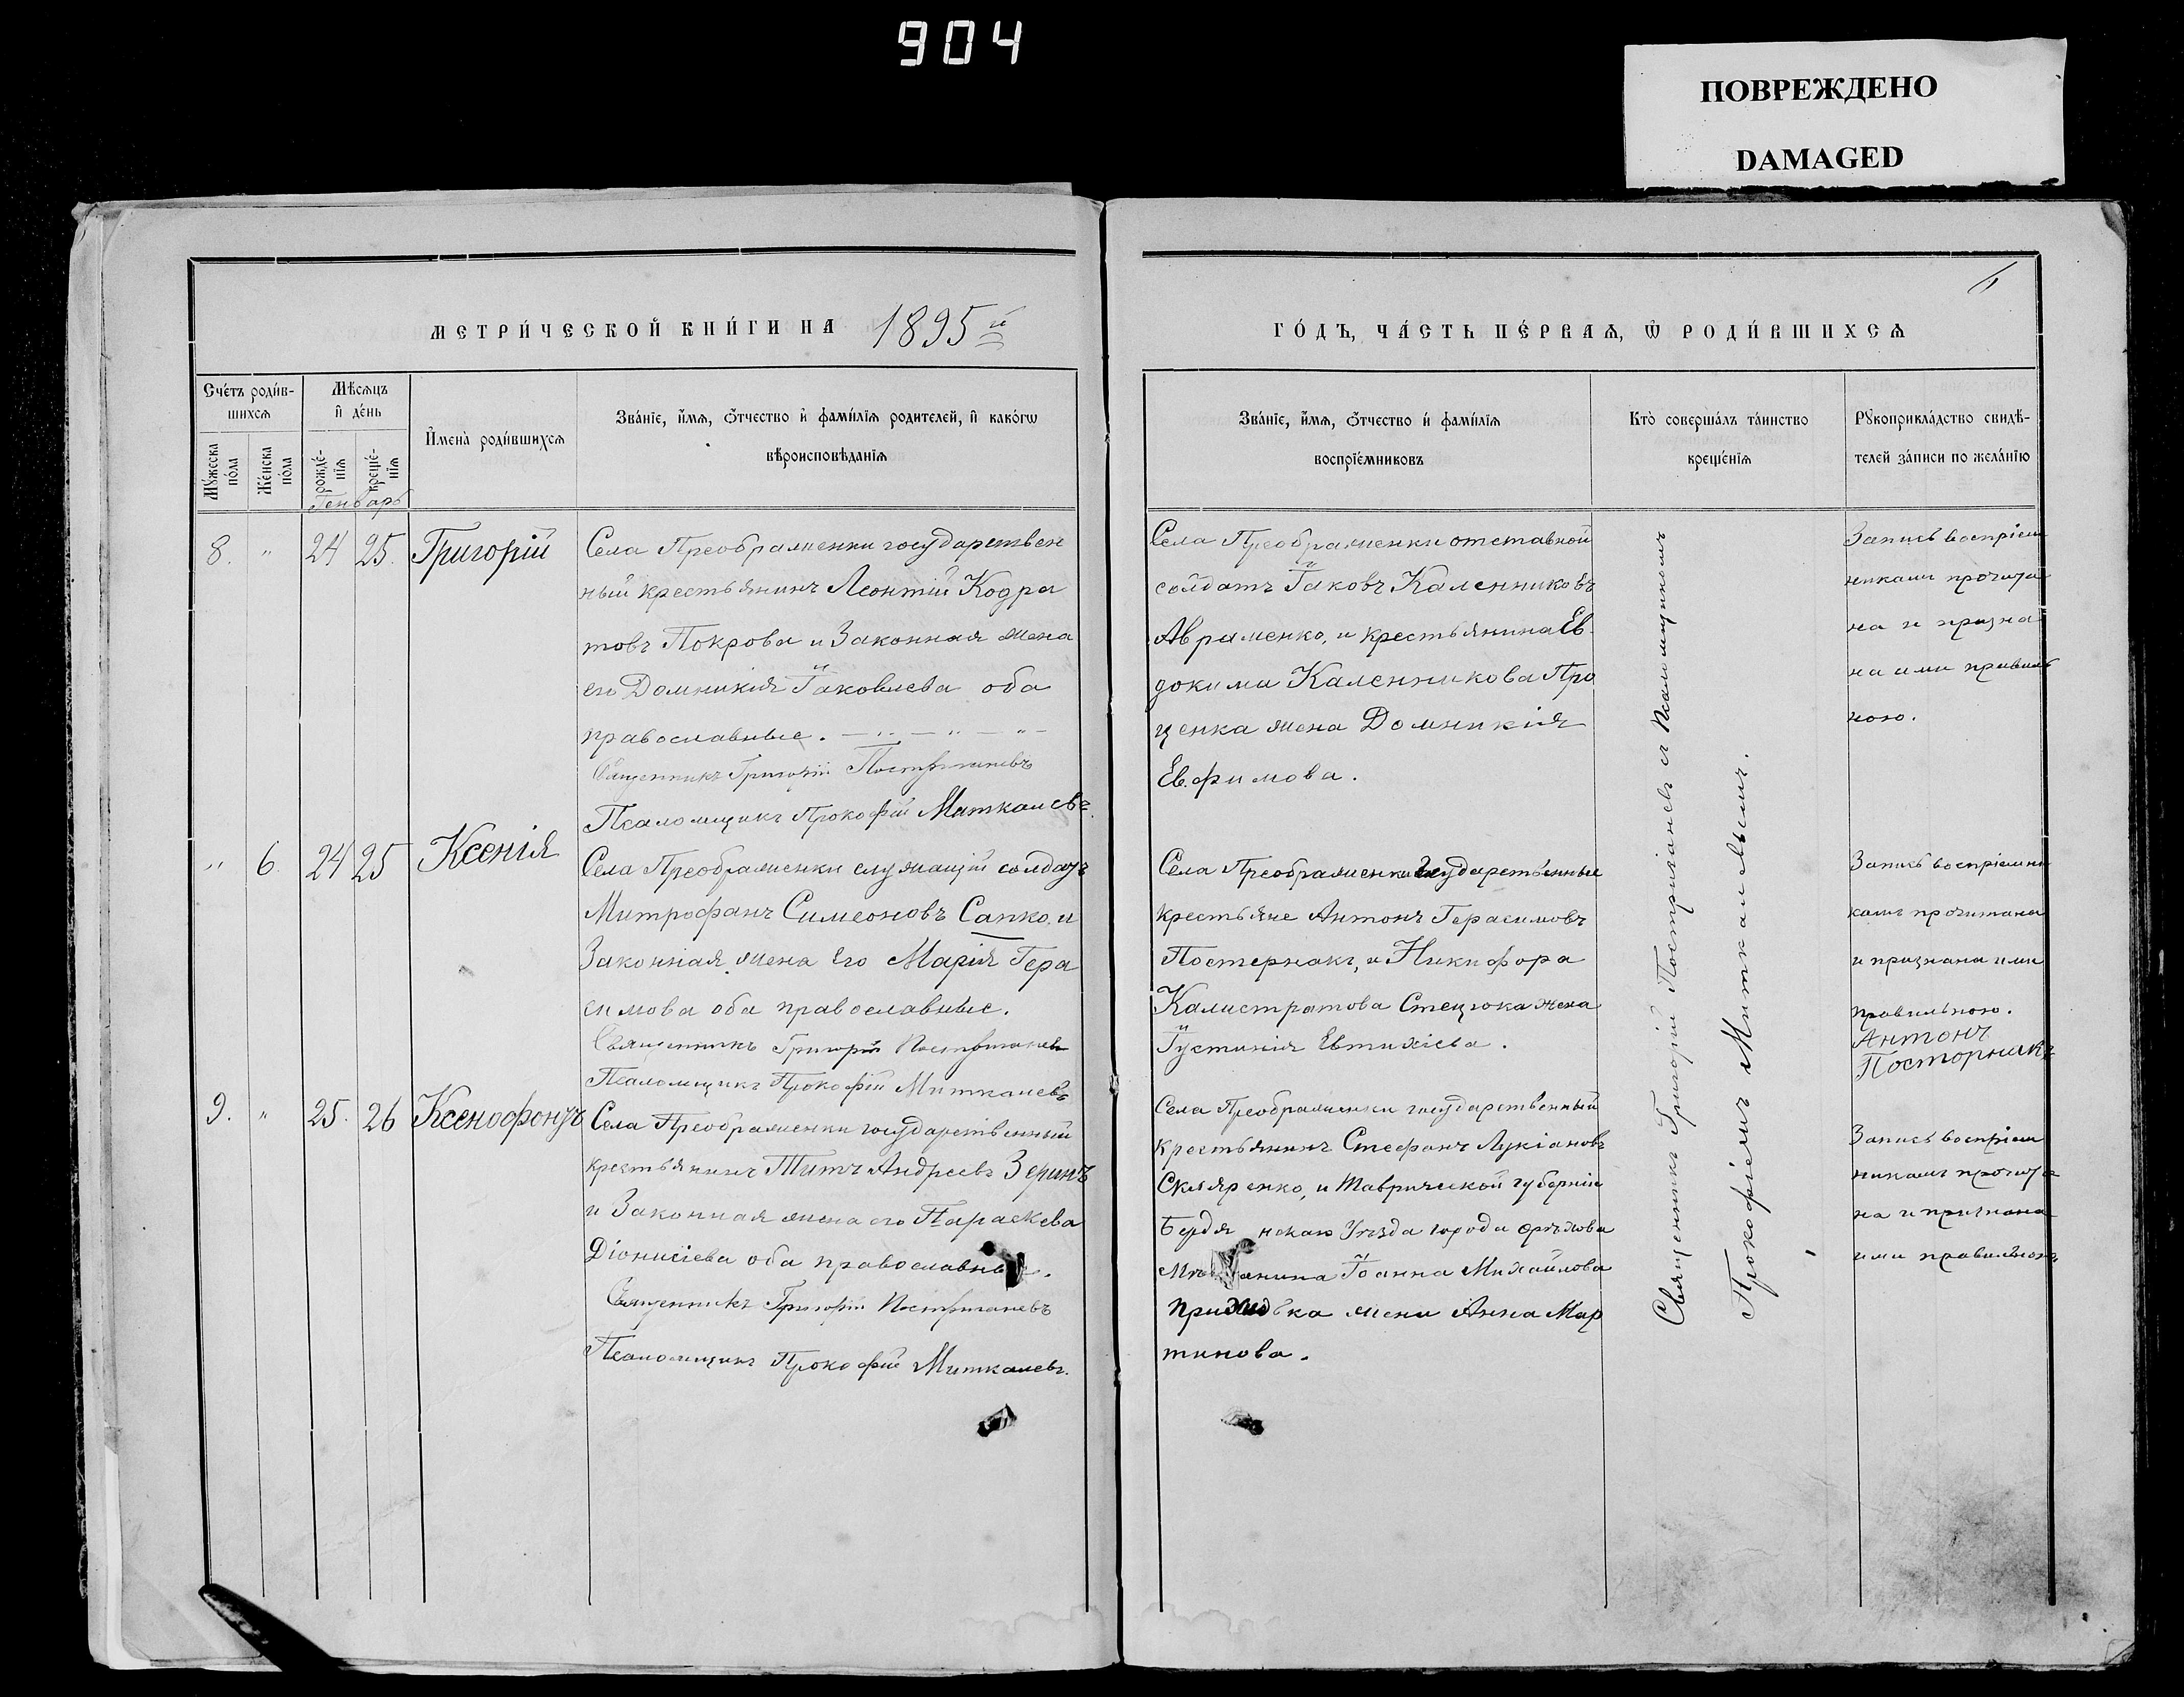 904
ПОВРЕЖДЕНО
DAMAGED
МЕТРИ́ЧЕСКОЙ КНИ́ГИ НА 1895й
ГО́ДЪ, ЧА́СТЬ ПЕ́РВАѦ, Ѡ҆ РОДИ́ВШИХСѦ
Сче́тъ роди́в-
шихсѧ
Мꙋ́жеска
по́ла
Же́нска
по́ла
Мѣ́сѧцъ
и҆ де́нь
рожде́-
нїѧ
креще́-
нїѧ
Генварь
И҆мена̀ роди́вшихсѧ
Зва́нїе, и҆́мѧ, ѻ҆́тчество и҆ фами́лїѧ родителей, и҆ како́гѡ
вѣроисповѣ́данїѧ
Зва́нїе, и҆́мѧ, ѻ҆́тчество и҆ фами́лїѧ
воспрїе́мниковъ
Кто̀ соверша́лъ та́инство
креще́нїѧ
Рꙋкоприкла́дство свидѣ́-
телей за́писи по жела́нїю
8. " 24 25. Григорій
Села Преображенки государствен
ный крестьянинъ Леонтій Кодра
товъ Покрова и Законная жена
его Домникія Іаковлева оба
православные.
Священникъ Григорій Постригачевъ
Псаломщикъ Прокофій Миткалевъ.
Села Преображенки отставной
солдатъ Іаковъ Каленниковъ
Авраменко, и крестьянина Ев
докима Каленникова Про
ценка жена Домникія
Евфимова.
Запись воспріем
никами прочита
на и призна
на ими правиль
ною.
" 6. 24 25 Ксенія
Села Преображенки служащій солдатъ
Митрофанъ Симеоновъ Сапко и
Законная жена Его Марія Гера
симова оба православные.
Священникъ Григорій Постригачевъ
Псаломщикъ Прокофій Миткалевъ
Села Преображенки Государственные
крестьяне Антонъ Герасимовъ
Постернакъ, и Никифора
Калистратова Стецюка жена
Іустинія Евтихіева.
Запись воспріемни
камъ прочитана
и признана ими
правильною.
Антонъ
Посторнакъ
9. " 25. 26 Ксенофонтъ
Села Преображенки государственный
крестьянинъ Титъ Андреевъ Зеринъ
и Законная жена его Параскева
Діонисіева оба православны.
Священникъ Григорій Постригачевъ
Псаломщикъ Прокофій Миткалевъ.
Села Преображенки государственный
крестьянинъ Стефанъ Лукіановъ
Скляренко, и Таврической губерніи
Бердянскаго Уѣзда города Орѣхова
Мѣ анина Іоанна Михайлова
жена Анна Мар
тинова.
Запись воспріем
никамъ прочита
на и признана
ими правильною.
Священникъ Григорій Постригачевъ и Псаломщикомъ
Прокофіемъ Миткалевымъ.